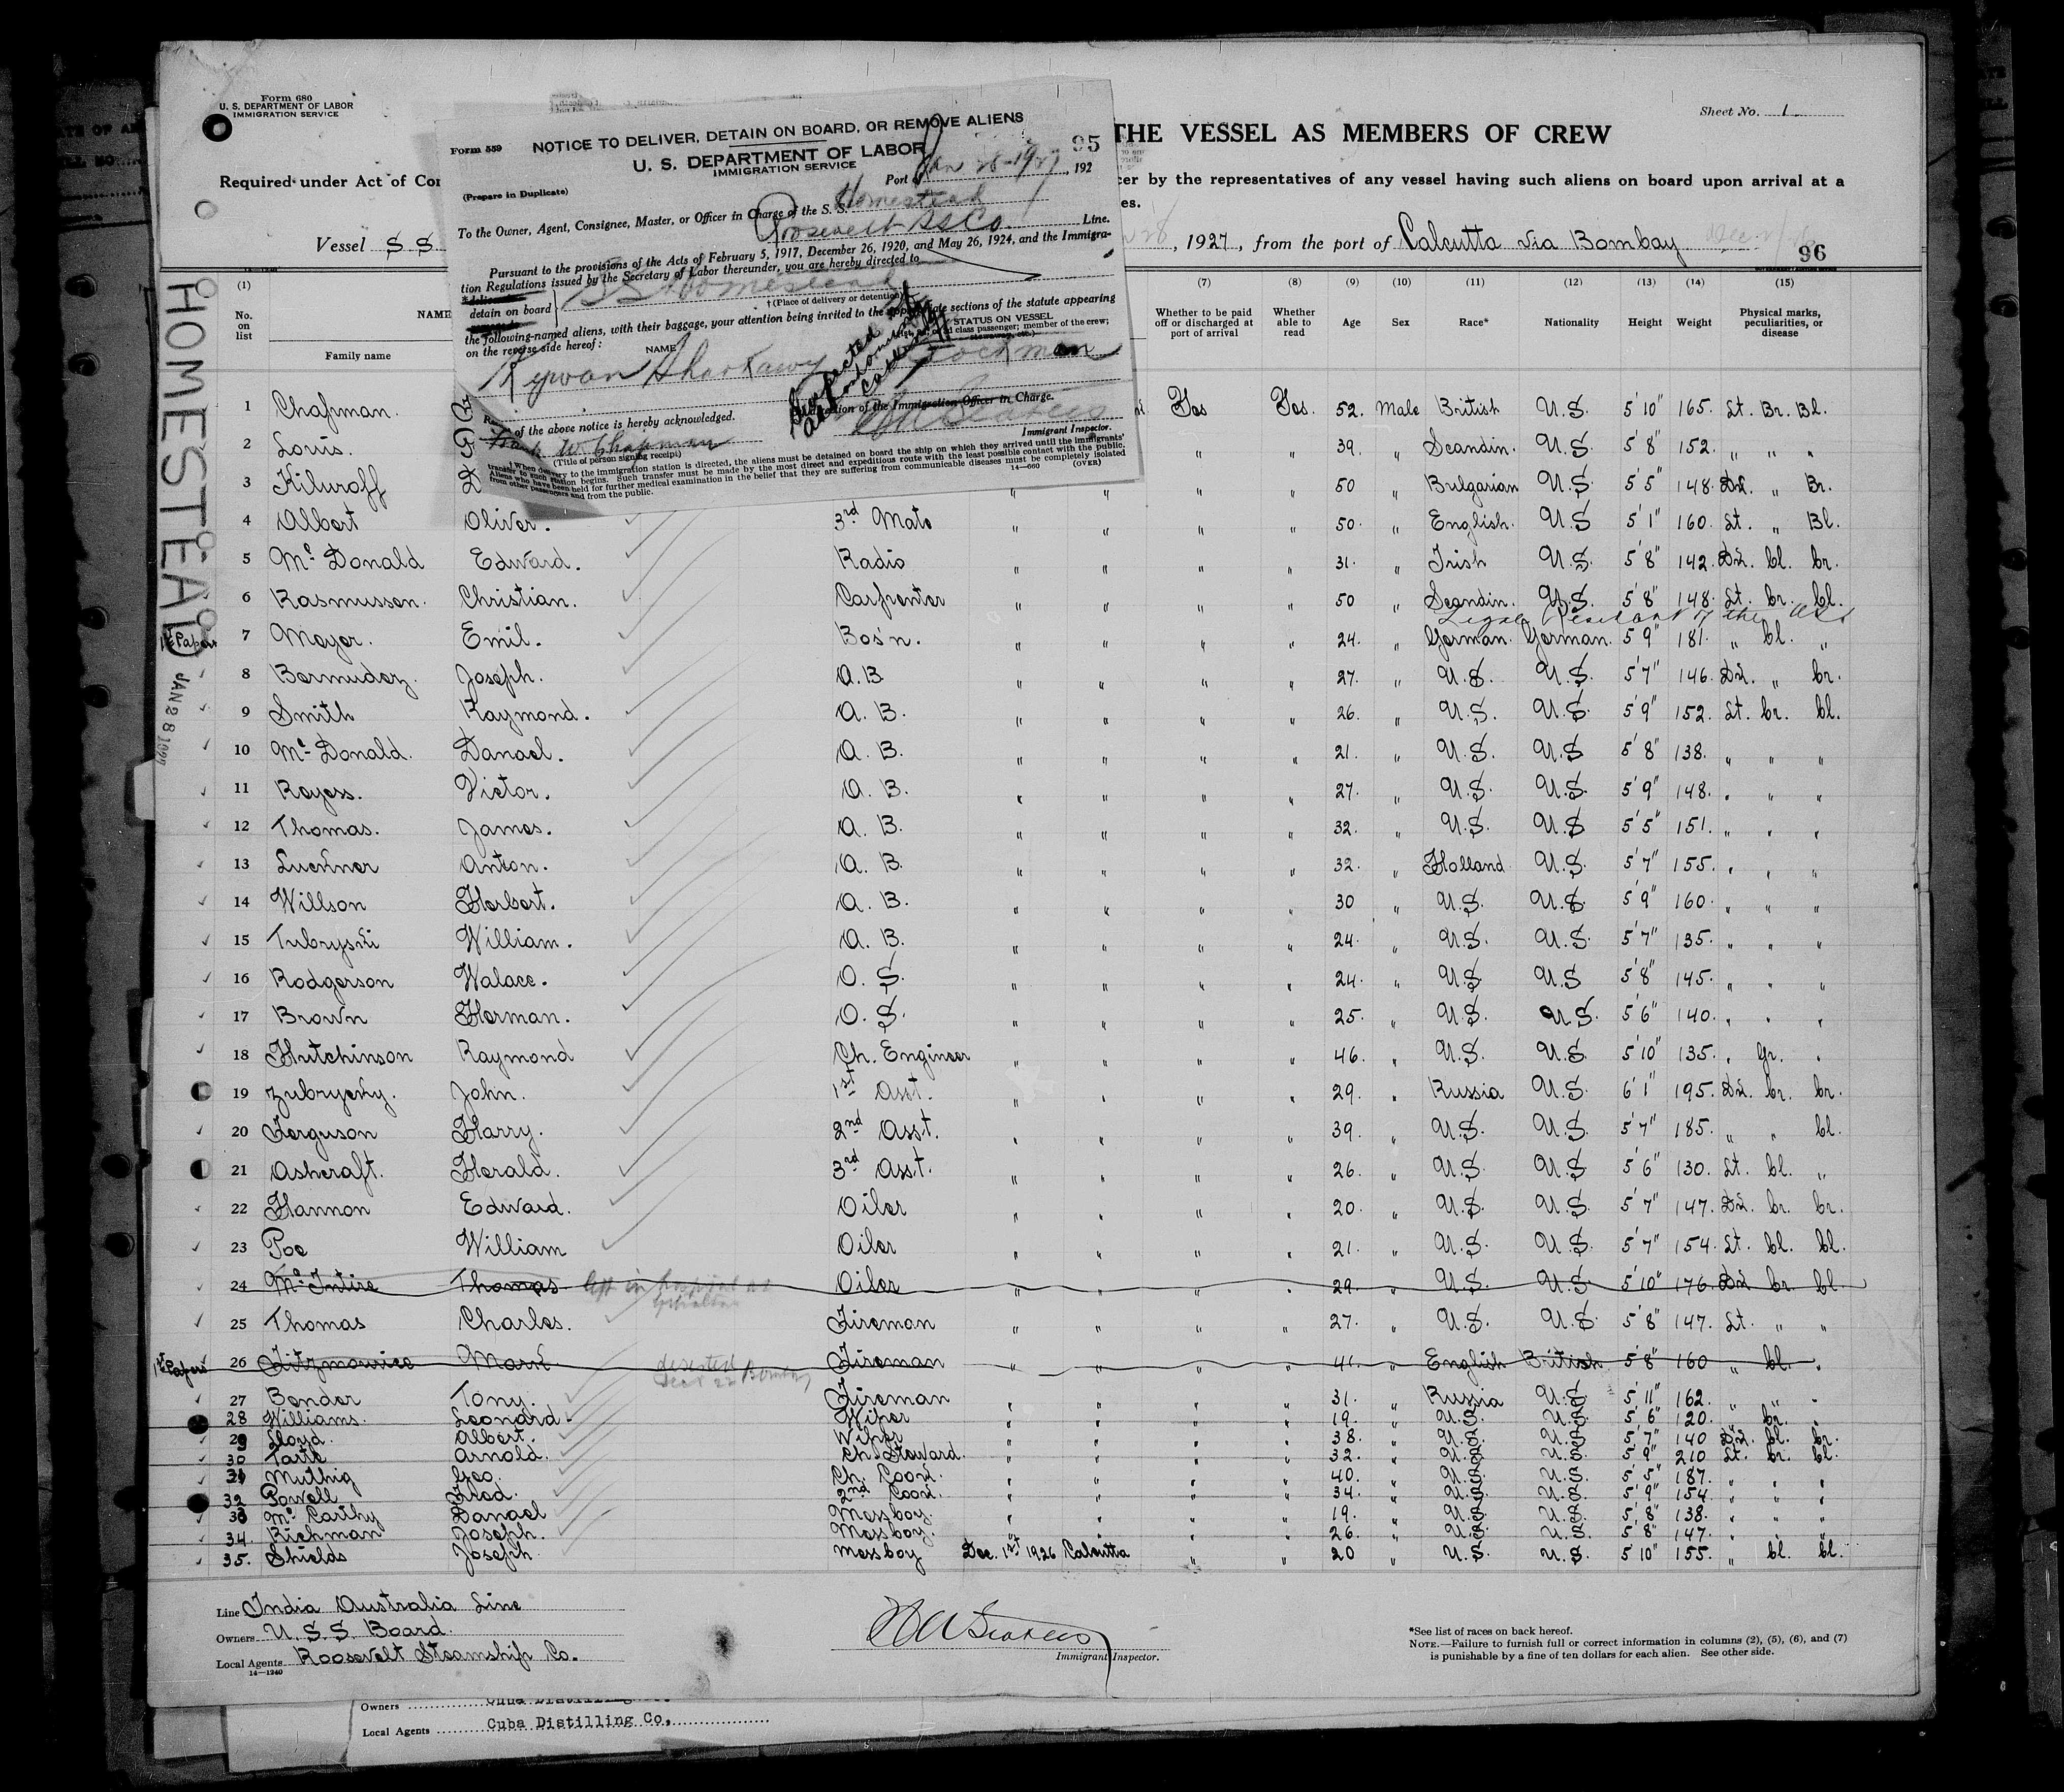 Form 680
U. S. DEPARTMENT OF LABOR
IMMIGRATION SERVICE
Sheet No. 1
THE VESSEL AS MEMBERS OF CREW
Required under Act of Con
cer by the representatives of any vessel having such aliens on board upon arrival at a
es.
Vessel S S
28, 1927, from the port of Calcutta via Bombay
96
Form 559
NOTICE TO DELIVER, DETAIN ON BOARD, OR REMOVE ALIENS
U. S. DEPARTMENT OF LABOR
IMMIGRATION SERVICE
95
(Prepare in Duplicate)
Port Jan 28-1927, 192
To the Owner, Agent, Consignee, Master, or Officer in Charge of the S. S. Homestead
Roosevelt SS Co. Line.
Pursuant to the provisions of the Acts of February 5, 1917, December 26, 1920, and May 26, 1924, and the Immigra-
tion Regulations issued by the Secretary of Labor thereunder, you are hereby directed to
detain on board SS Homestead
†(Place of delivery or detention)
the following-named aliens, with their baggage, your attention being invited to the appropriate sections of the statute appearing
on the reverse side hereof:
NAME
STATUS ON VESSEL
class passenger; member of the crew;
of the above notice is hereby acknowledged.
of the Immigration Officer in Charge.
Frank W. Chapman
(Title of person signing receipt)
Immigrant Inspector.
When delivery to the immigration station is directed, the aliens must be detained on board the ship on which they arrived until the immigrants'
transfer to such station begins. Such transfer must be made by the most direct and expeditious route with the least possible contact with the public.
Aliens who have been held for further medical examination in the belief that they are suffering from communicable diseases must be completely isolated
from other passengers and from the public.
14—660 (OVER)
HOMESTEAD
JAN 28
(1) (7) (8) (9) (10) (11) (12) (13) (14) (15)
No. on list NAME Family name Whether to be paid off or discharged at port of arrival Whether able to read Age Sex Race* Nationality Height Weight Physical marks, peculiarities, or disease
1 Chapman. Yes Yes. 52. Male British U.S. 5'10" 165. Lt. Br. Bl.
2 Loris. " " 39. " Scandin. U.S. 5'8" 152. " " "
3 Kiluroff " " " " 50 " Bulgarian U.S. 5'5" 148. Dk. " Br.
4 Albert Oliver. 3rd Mate " " " " 50. " English. U.S 5'1" 160. Lt. " Bl.
5 Mc Donald Edward. Radio " " " " 31. " Irish U.S. 5'8" 142. Dk. bl. br.
6 Rasmussen. Christian. Carpenter " " " " 50 " Scandin. U.S. 5'8" 148. Lt. br. bl.
Legal Resident of the USA
1st Papers 7 Meyer. Emil. Bos'n. " " " " 24. " German. German. 5'9" 181. " bl. "
8 Bermudez. Joseph. A.B " " " " 27. " U.S. U.S. 5'7" 146. Dk. " br.
9 Smith Raymond. A. B. " " " " 26. " U.S. U.S. 5'9" 152. Lt. br. bl.
10 Mc Donald. Danael. A. B. " " " " 21. " U.S. U.S 5'8" 138. " " "
11 Reyess. Victor. A. B. " " " " 27. " U.S. U.S. 5'9" 148. " " "
12 Thomas. James. A. B. " " " " 32. " U.S. U.S 5'5" 151. " " "
13 Luckner Anton. A. B. " " " " 32. " Holland U.S. 5'7" 155. " " "
14 Willson Herbert. A. B. " " " " 30 " U.S. U.S. 5'9" 160. " " "
15 Tubryski William. A. B. " " " " 24. " U.S. U.S. 5'7" 135. " " "
16 Rodgerson Walace. O. S. " " " " 24. " U.S U.S 5'8" 145. " " "
17 Brown Herman. O. S. " " " " 25. " U.S. U.S. 5'6" 140. " " "
18 Hutchinson Raymond Ch. Engineer " " " " 46. " U.S. U.S. 5'10" 135. " Gr. "
19 Zubrycky. John. 1st Asst. " " " " 29. " Russia U.S. 6'1" 195. Dk. br. br.
20 Ferguson Harry. 2nd Asst. " " " " 39. " U.S. U.S. 5'7" 185. " " bl.
21 Ashcraft. Herald. 3rd Asst. " " " " 26. " U.S. U.S 5'6" 130. Lt. bl. "
22 Hannon Edward. Oiler " " " " 20. " U.S. U.S. 5'7" 147. Dk. br. br.
23 Poe William Oiler " " " " 21. " U.S. U.S. 5'7" 154. Lt. bl. bl.
24 Mc Intire Thomas left in hospital at Gibraltar Oiler " " " " 29. " U.S. U.S. 5'10" 176. Dk br bl.
25 Thomas Charles. Fireman " " " " 27. " U.S. U.S. 5'8" 147. Lt. " "
1st Papers 26 Fitzmowice Mark deserted Dec 22 Bombay Fireman " " " " 41. " English British 5'8" 160 " bl. "
27 Bender Tony. Fireman " " " " 31. " Russia U.S. 5'11" 162. " " "
28 Williams. Leonard. Wiper " " " " 19. " U.S. U.S. 5'6" 120. " br. "
29 Lloyd. Albert. Wiper " " " " 38. " U.S. U.S. 5'7" 140 Dk. bl. br.
30 Tarte Arnold. Ch. Steward. " " " " 32. " U.S. U.S. 5'9" 210 Lt. br. bl.
31 Muthig Geo. Ch. Cook. " " " " 40. " U.S. U.S. 5'5" 187. " " "
32 Powell Fred. 2nd Cook. " " " " 34. " U.S. U.S. 5'9" 154 " " "
33 Mc Carthy Danael Messboy. " " " " 19. " U.S. U.S. 5'8" 138. " " "
34. Richman Joseph. Messboy. " " " " 26. " U.S. U.S. 5'8" 147. " " "
35. Shields Joseph. Messboy Dec. 1st 1926 Calcutta " " 20 " U.S. U.S. 5 10" 155. " bl. bl.
Line India Australia Line
Owners U.S.S. Board.
Local Agents Roosevelt Steamship Co.
14—1240
Immigrant Inspector.
*See list of races on back hereof.
NOTE.—Failure to furnish full or correct information in columns (2), (5), (6), and (7)
is punishable by a fine of ten dollars for each alien. See other side.
Owners
Local Agents Cuba Distilling Co.